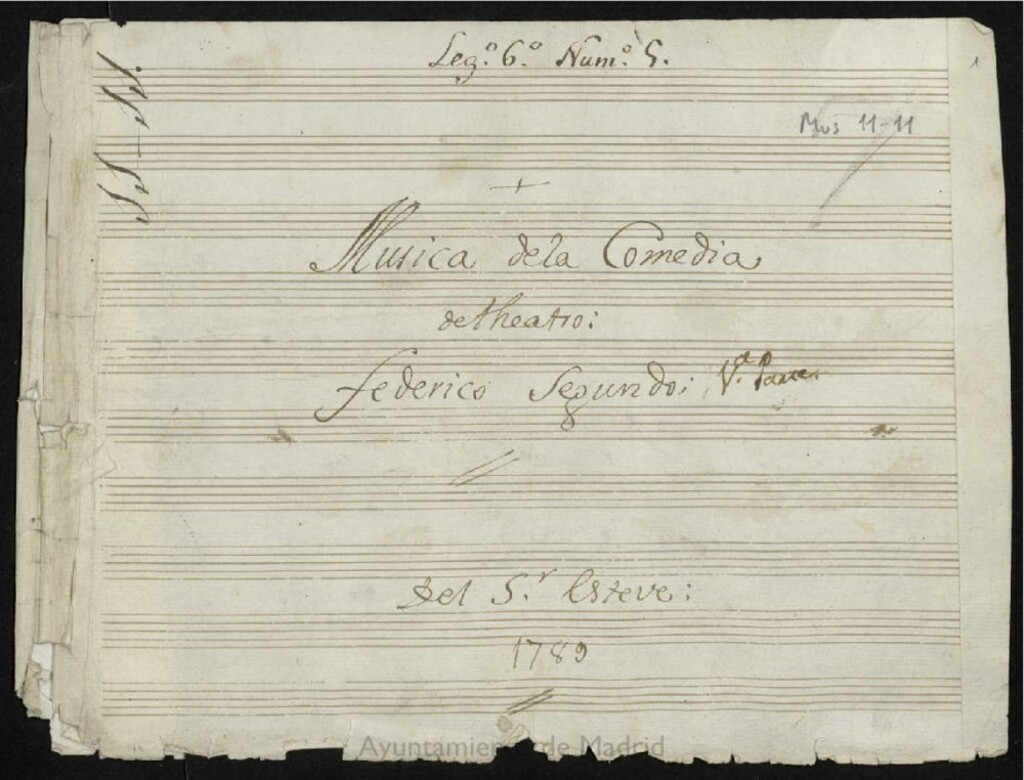 Leg.º 6.º Num.º 5.
Mus 11-11
1
+
Musica dela Comedia
de theatro:
Federico Segundo: 1.ª Parte.
Del S.r Esteve:
1789
Ayuntamiento de Madrid